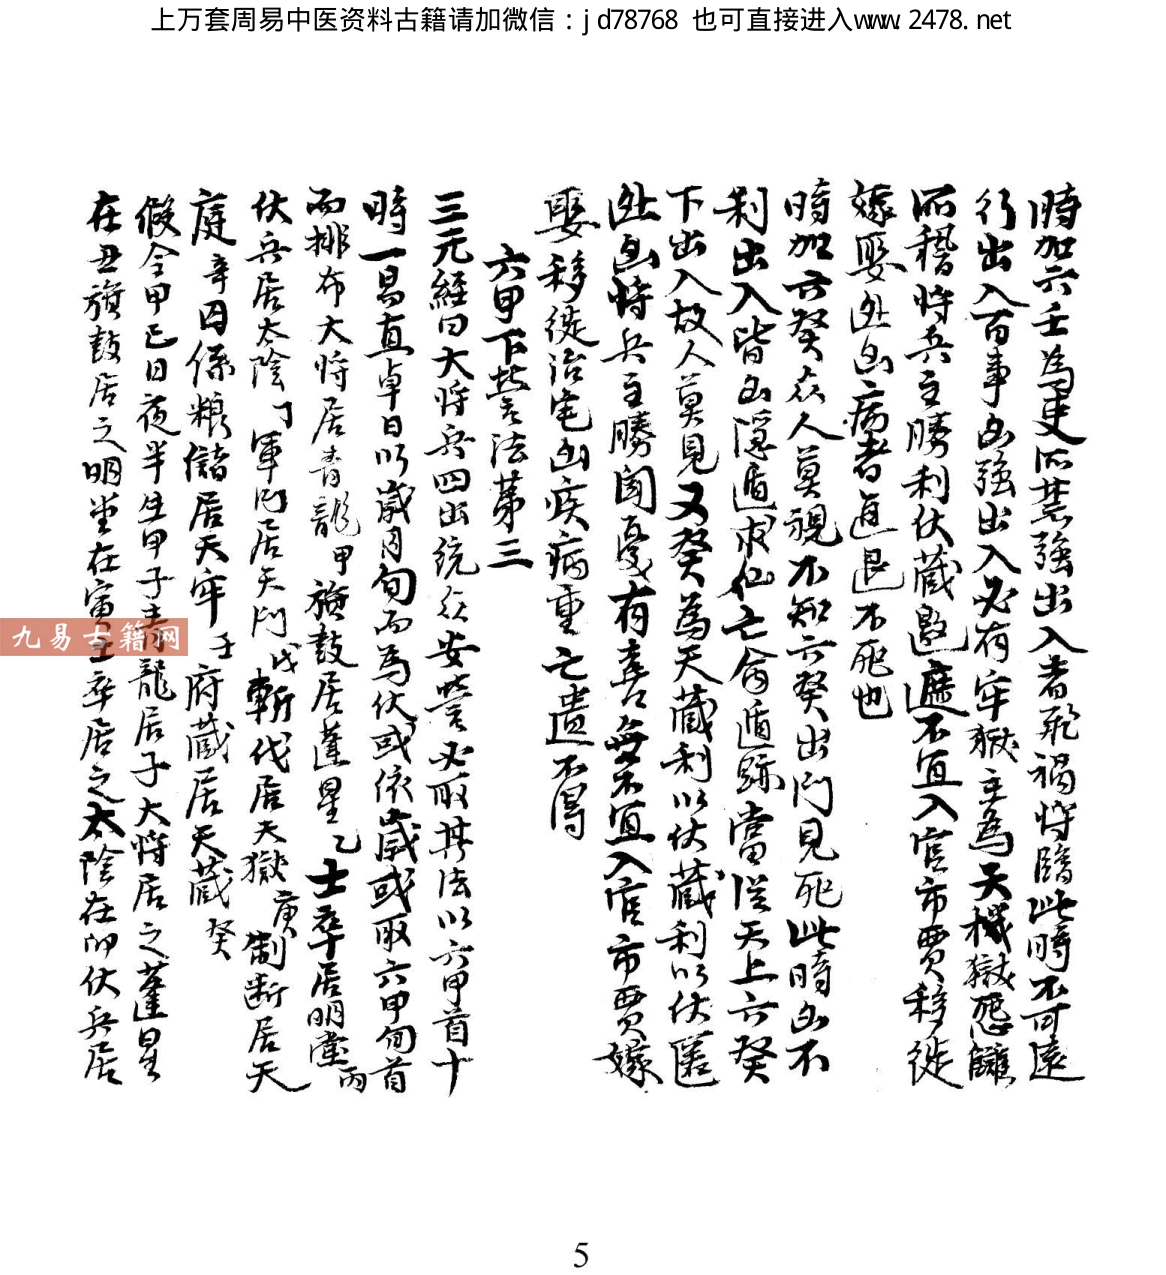 上万套周易中医资料古籍请加微信：jd78768 也可直接进入www.2478.net
時加六壬為吏所禁強出入者刑禍將臨此時不可遠
行出入百事凶強出入必有牢獄壬為天機獄怨讎
所稽將兵主勝利伏藏邀遮不宜入官市賈移徙
嫁娶逃凶病者進退不死也
時加六癸众人莫視不知六癸出門見死此時凶不
利出入皆凶隱遁求仙亡命遁跡當從天上六癸
下出入故人莫見又癸為天藏利以伏藏利以伏匿
逃凶將兵主勝聞憂有喜不宜入官市賈嫁
娶移徙治宅凶疾病重亡遺不得
六甲下營法第三
三元經曰大將兵四出統众安營必取其法以六甲首十
時一易直卓日以歲月旬而為伏或依歲或取六甲旬首
而排布大將居青龍甲旗鼓居蓬星乙士卒居明堂丙
伏兵居太陰丁軍門居天門戊斬伐居天獄庚制断居天
庭辛囚係粮儲居天牢壬府藏居天藏癸
假令甲己日夜半生甲子青龍居子大將居之蓬星
在丑旗鼓居之明堂在寅士卒居之太陰在卯伏兵居
九易古籍网
5